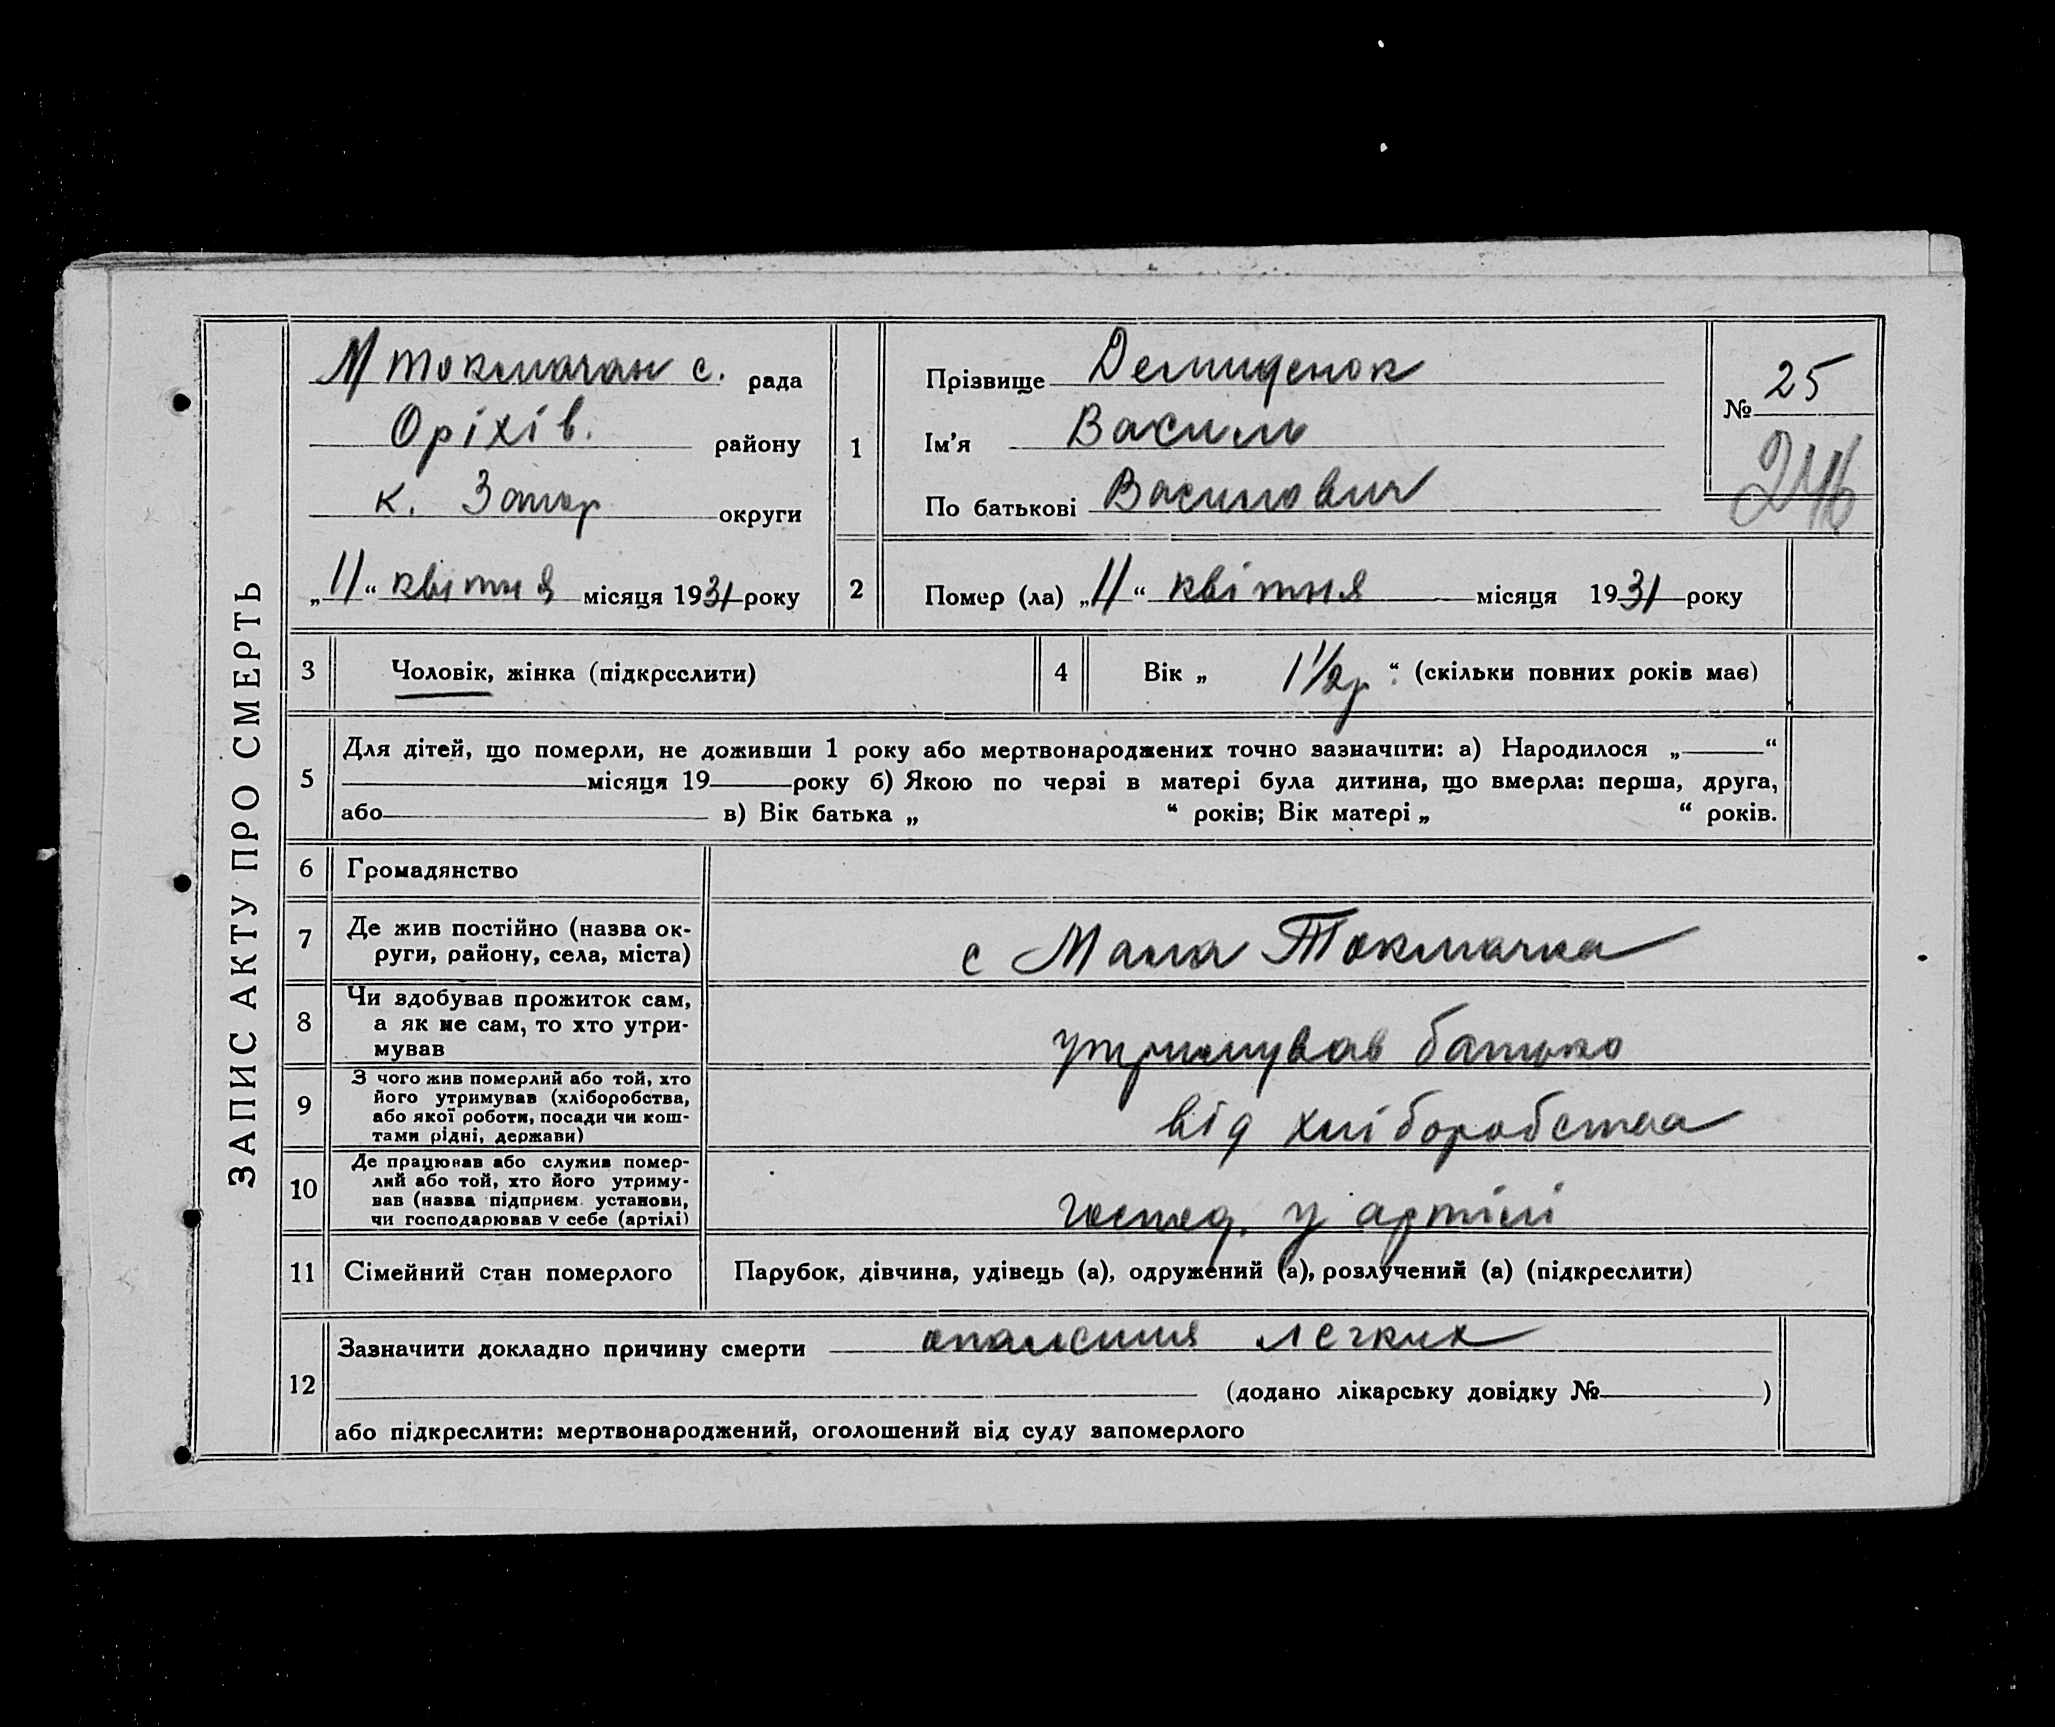 ЗАПИС АКТУ ПРО СМЕРТЬ
М токмачан с. рада
Оріхів. району
к. Запор округи
„11“ квітня місяця 1931 року
1
Прізвище Демиденок
Ім'я Василь
По батькові Василович
№ 25
246
2
Помер (ла) „11“ квітня місяця 1931 року
3 Чоловік, жінка (підкреслити)
4 Вік „ 1 1/2 р “ (скільки повних років має)
5
Для дітей, що померли, не доживши 1 року або мертвонароджених точно зазначити: а) Народилося „ “
місяця 19 року б) Якою по черзі в матері була дитина, що вмерла: перша, друга,
або в) Вік батька „ “ років; Вік матері „ “ років.
6 Громадянство
7
Де жив постійно (назва ок-
руги, району, села, міста)
с Мала Токмачка
8
Чи здобував прожиток сам,
а як не сам, то хто утри-
мував
утримував батько
9
З чого жив померлий або той, хто
його утримував (хліборобства,
або якої роботи, посади чи кош-
тами рідні, держави)
від хліборобства
10
Де працював або служив помер-
лий або той, хто його утриму-
вав (назва підприєм. установи,
чи господарював у себе (артілі)
господ. у артілі
11 Сімейний стан померлого
Парубок, дівчина, удівець (а), одружений (а), розлучений (а) (підкреслити)
12
Зазначити докладно причину смерти опаления легких
(додано лікарську довідку № )
або підкреслити: мертвонароджений, оголошений від суду запомерлого